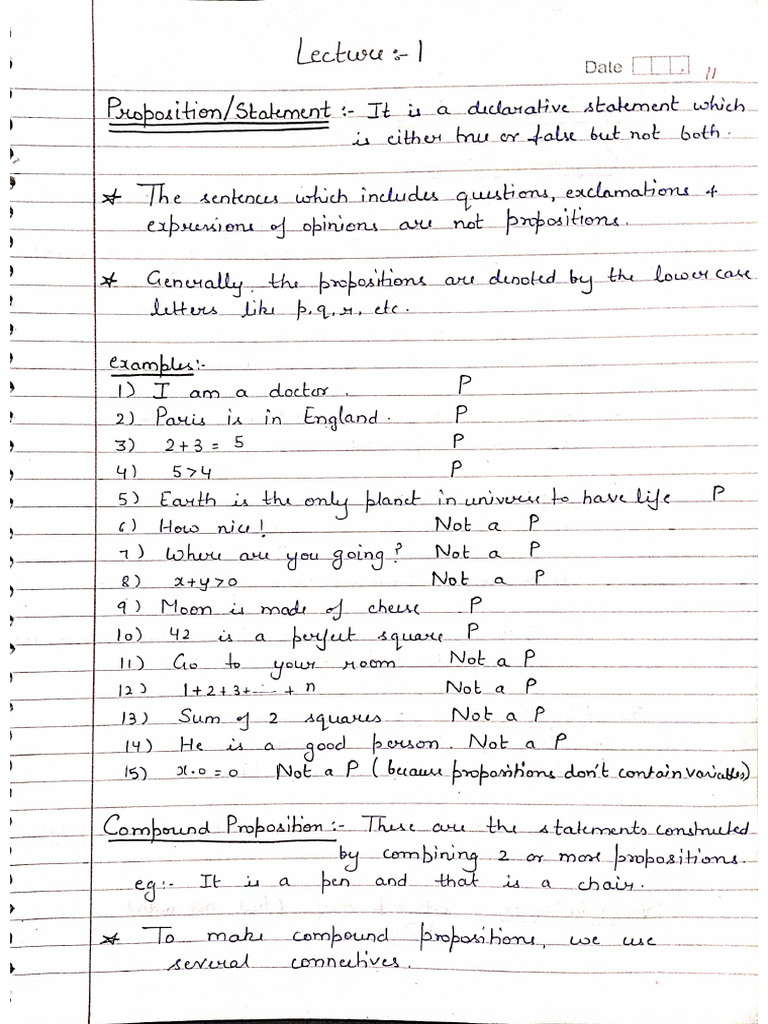 Lecture :- 1
Date 11
Proposition/Statement :- It is a declarative statement which
is either true or false but not both.
* The sentences which includes questions, exclamations &
expressions of opinions are not propositions.
* Generally, the propositions are denoted by the lower case
letters like p, q, r, etc.
examples:-
1) I am a doctor. P
2) Paris is in England. P
3) 2+3 = 5 P
4) 5>4 P
5) Earth is the only planet in universe to have life P
6) How nice! Not a P
7) Where are you going? Not a P
8) x+y>0 Not a P
9) Moon is made of cheese P
10) 42 is a perfect square P
11) Go to your room Not a P
12) 1+2+3+.... + n Not a P
13) Sum of 2 squares Not a P
14) He is a good person. Not a P
15) x.0 = 0 Not a P (because propositions don't contain variables)
Compound Proposition:- These are the statements constructed
by combining 2 or more propositions.
eg:- It is a pen and that is a chair.
* To make compound propositions, we use
several connectives.